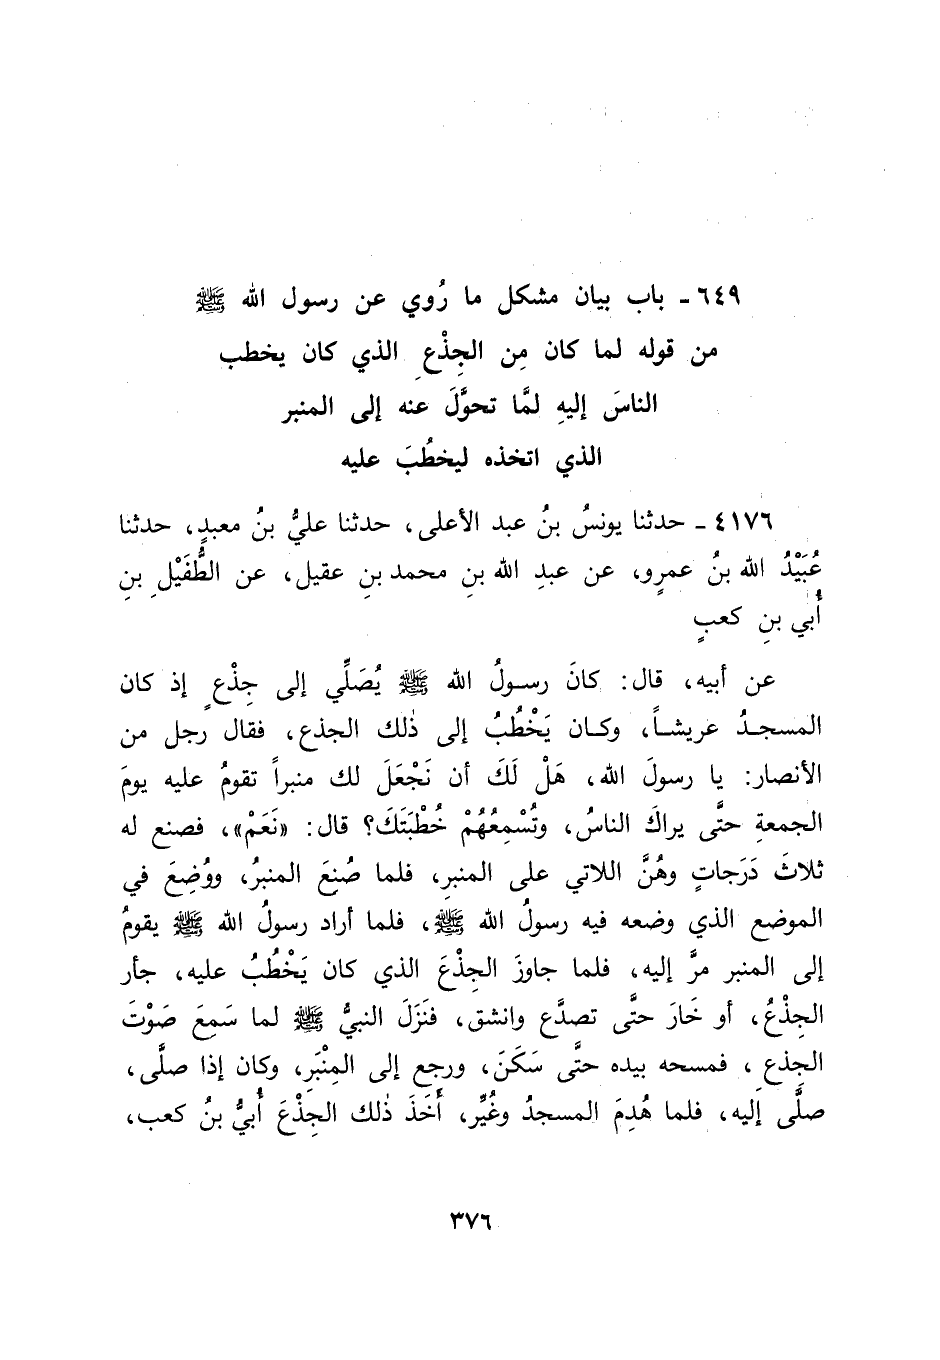 ٦٤٩ - باب بيان مشكل ما رُوي عن رسول الله ﷺ
من قوله لما كان مِن الجِذْعِ الذي كان يخطب
الناسَ إليهِ لمَّا تحوَّلَ عنه إلى المنبر
الذي اتخذه ليخطُبَ عليه
٤١٧٦ - حدثنا يونسُ بنُ عبد الأعلى، حدثنا عليُّ بنُ معبدٍ، حدثنا
عُبَيْدُ الله بنُ عمرٍو، عن عبدِ الله بنِ محمد بنِ عقيل، عن الطُّفَيْلِ بنِ
أُبي بنِ كعبٍ
عن أبيه، قال: كانَ رسولُ الله ﷺ يُصَلِّي إلى جِذْعٍ إذ كان
المسجدُ عريشاً، وكان يَخْطُبُ إلى ذٰلك الجذع، فقال رجل من
الأنصار: يا رسولَ الله، هَلْ لَكَ أن نَجْعَلَ لك منبراً تقومُ عليه يومَ
الجمعةِ حتَّى يراكَ الناسُ، وتُسْمِعُهُمْ خُطْبَتَكَ؟ قال: «نَعَمْ»، فصنع له
ثلاثَ دَرَجاتٍ وهُنَّ اللاتي على المنبرِ، فلما صُنِعَ المنبرُ، ووُضِعَ في
الموضع الذي وضعه فيه رسولُ الله ﷺ، فلما أراد رسولُ الله ﷺ يقومُ
إلى المنبر مرَّ إليه، فلما جاوزَ الجِذْعَ الذي كان يَخْطُبُ عليه، جأر
الجِذْعُ، أو خَارَ حتَّى تصدَّع وانشق، فنَزَلَ النبيُّ ﷺ لما سَمِعَ صَوْتَ
الجِذعِ، فمسحه بيده حتَّى سَكَنَ، ورجع إلى المِنْبَرِ، وكان إذا صلَّى،
صلَّى إليه، فلما هُدِمَ المسجدُ وغُيِّر، أَخَذَ ذٰلك الجِذْعَ أُبيُّ بنُ كعب،
٣٧٦